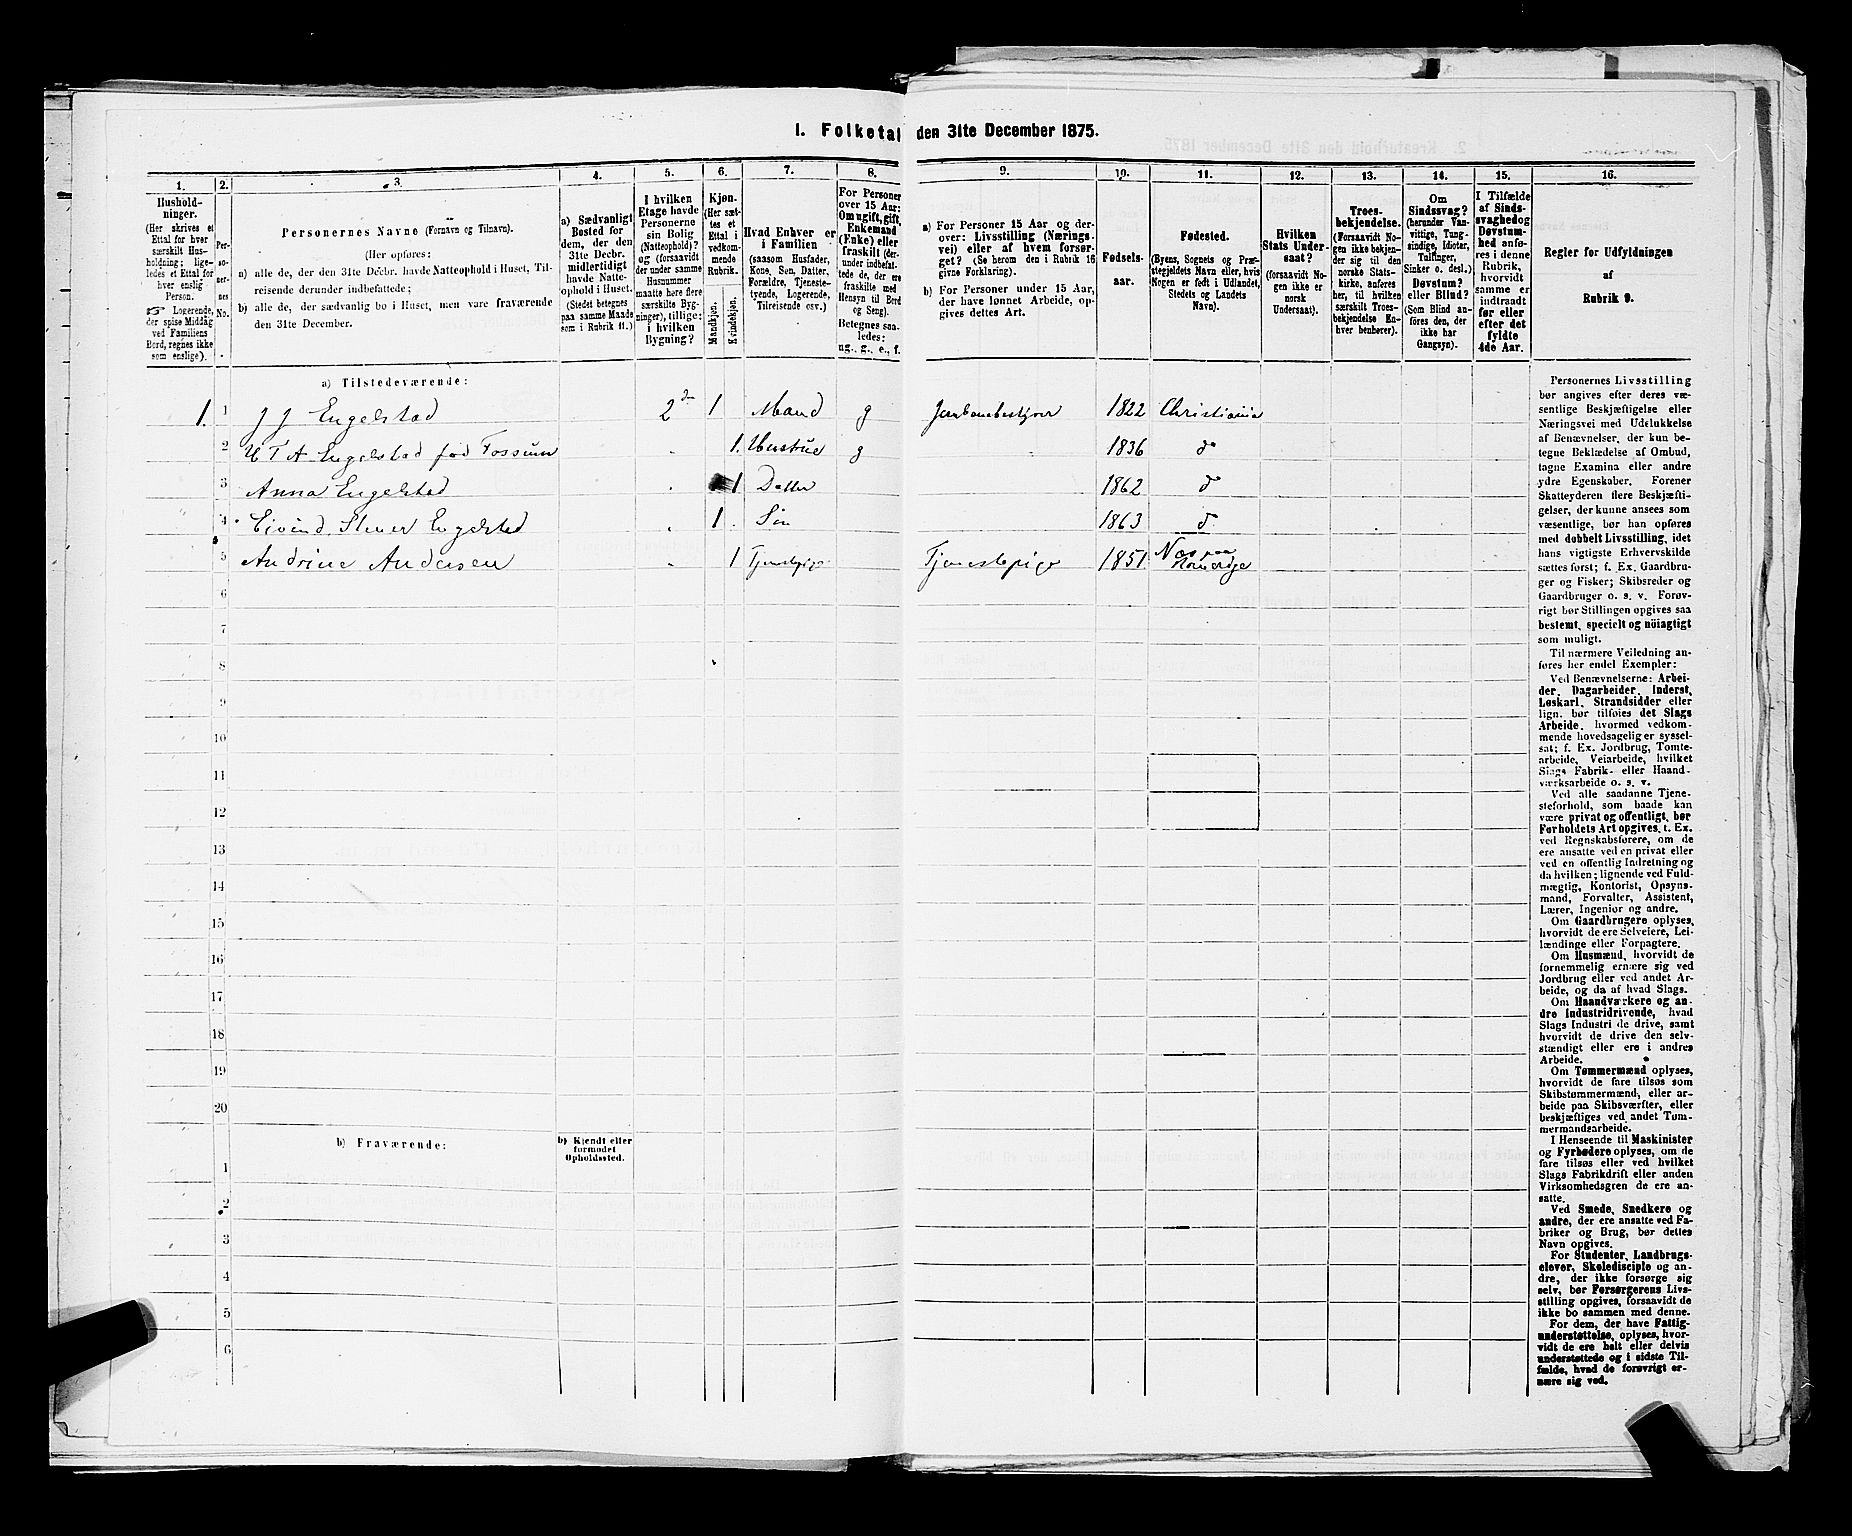 I. Folketal den 31te December 1875.
1. 2. 3. 4. 5. 6. 7. 8. 9. 10. 11. 12. 13. 14. 15. 16.
Hushold-
ninger.
(Her skrives et
Ettal for hver
særskilt Hus-
holdning; lige-
ledes et Ettal for
hver enslig
Person.
☞ Logerende,
der spise Middag
ved Familiens
Bord, regnes ikke
som enslige).
Per-
so-
ner-
nes
No.
Personernes Navne (Fornavn og Tilnavn).
(Her opføres:
a) alle de, der den 31te Decbr. havde Natteophold i Huset, Til-
reisende derunder indbefattede;
b) alle de, der sædvanlig bo i Huset, men vare fraværende
den 31te December.
a) Sædvanligt
Bosted for
dem, der den
31te Decbr.
midlertidigt
havde Natte-
ophold i Huset.
(Stedet betegnes
paa samme Maade
som i Rubrik 11.)
I hvilken
Etage havde
Personerne
sin Bolig
(Natteophold)?
og (forsaavidt
der under samme
Husnummer
maatte høre flere
særskilte Byg-
ninger), tillige:
i hvilken
Bygning?
Kjøn.
(Her sæt-
tes et
Ettal i
vedkom-
mende
Rubrik.
Mandkjøn.
Kvindekjøn.
Hvad Enhver er
i Familien
(saasom Husfader,
Kone, Søn, Datter,
Forældre, Tjeneste-
tyende, Logerende,
Tilreisende osv.)
For Personer
over 15 Aar:
Om ugift, gift,
Enkemand
(Enke) eller
fraskilt (der-
under indbefat-
tede de, der ere
fraskilte med
Hensyn til Bord
og Seng).
Betegnes saa-
ledes:
ug., g., e., f.
a) For Personer 15 Aar og der-
over: Livsstilling (Nærings-
vei) eller af hvem forsør-
get? (Se herom den i Rubrik 16
givne Forklaring).
b) For Personer under 15 Aar,
der have lønnet Arbeide, op-
gives dettes Art.
Fødsels-
aar.
Fødested.
(Byens, Sognets og Præ-
stegjeldets Navn eller, hvis
Nogen er født i Udlandet,
Stedets og Landets
Navn).
Hvilken
Stats Under-
saat?
(forsaavidt No-
gen ikke er
norsk
Undersaat).
Troes-
bekjendelse.
(Forsaavidt No-
gen ikke bekjen-
der sig til den
norske Stats-
kirke, anføres
her, til hvilken
særskilt Troes-
bekjendelse En-
hver henhører).
Om
Sindssvag?
(herunder Van-
vittige, Tung-
sindige, Idioter,
Tullinger,
Sinker o. desl.)
Døvstum?
eller Blind?
(Som Blind an-
føres den, der
ikke har
Gangsyn).
I Tilfælde
af Sinds-
svaghed og
Døvstum-
hed anfø-
res i denne
Rubrik,
hvorvidt
samme er
indtraadt
før eller
efter det
fyldte
4de Aar.
Regler for Udfyldningen
af
Rubrik 9.
a) Tilstedeværende:
1. 1 J J Engelstad 2den 1 Mand g Jernbanebestyrer 1822 Christiania
2 Engelstad fød Fossum 1. Hustrue g 1836 do
3 Anna Engelstad 1 Datter 1862 do
4 Eivind Engelstad 1 Søn 1863 do
5 Andrine Andersen 1 Tjenestepige Tjenestepige 1851 Næs paa
6
7
8
9
10
11
12
13
14
15
16
17
18
19
20
b) Fraværende:
b) Kjendt eller
formodet
Opholdssted.
1
2
3
4
5
6
Personernes Livsstilling
bør angives efter deres væ-
sentlige Beskjæftigelse eller
Næringsvei med Udelukkelse
af Benævnelser, der kun be-
tegne Beklædelse af Ombud,
tagne Examina eller andre
ydre Egenskaber. Forener
Skatteyderen flere Beskjæfti-
gelser, der kunne ansees som
væsentlige, bør han opføres
med dobbelt Livsstilling, idet
hans vigtigste Erhvervskilde
sættes først; f. Ex. Gaardbru-
ger og Fisker; Skibsreder og
Gaardbruger o. s. v. Forøv-
rigt bør Stillingen opgives saa
bestemt, specielt og nöiagtigt
som muligt.
Til nærmere Veiledning an-
føres her endel Exempler:
Ved Benævnelserne: Arbei-
der, Dagarbeider, Inderst,
Løskarl, Strandsidder eller
lign. bør tilføies det Slags
Arbeide, hvormed vedkom-
mende hovedsagelig er syssel-
sat; f. Ex. Jordbrug, Tomte-
arbeide, Veiarbeide, hvilket
Slags Fabrik- eller Haand-
værksarbeide o. s. v.
Ved alle saadanne Tjene-
steforhold, som baade kan
være privat og offentligt, bør
Forholdets Art opgives, t. Ex.
ved Regnskabsførere, om de
ere ansatte ved en privat eller
ved en offentlig Indretning og
da hvilken; lignende ved Fuld-
mægtig, Kontorist, Opsyns-
mand, Forvalter, Assistent,
Lærer, Ingeniør og andre.
Om Gaardbrugere oplyses,
hvorvidt de ere Selveiere, Lei-
lændinge eller Forpagtere.
Om Husmænd, hvorvidt de
fornemmelig ernære sig ved
Jordbrug eller ved andet Ar-
beide, og da af hvad Slags.
Om Haandværkere og an-
dre Industridrivende, hvad
Slags Industri de drive, samt
hvorvidt de drive den selv-
stændigt eller ere i andres
Arbeide.
Om Tømmermænd oplyses,
hvorvidt de fare tilsøs som
Skibstømmermænd, eller ar-
beide paa Skibsværfter, eller
beskjæftiges ved andet Tøm-
mermandsarbeide.
I Henseende til Maskinister
og Fyrbødere oplyses, om de
fare tilsøs eller ved hvilket
Slags Fabrikdrift eller anden
Virksomhedsgren de ere an-
satte.
Ved Smede, Snedkere og
andre, der ere ansatte ved Fa-
briker og Brug, bør dettes
Navn opgives.
For Studenter, Landbrugs-
elever, Skoledisciple og an-
dre, der ikke forsørge sig
selv, bør Forsørgerens Livs-
stilling opgives, forsaavidt de
ikke bo sammen med denne.
For dem, der have Fattig-
understøttelse, oplyses, hvor-
vidt de ere helt eller delvis
understøttede og i sidste Til-
fælde, hvad de forøvrigt er-
nære sig ved.